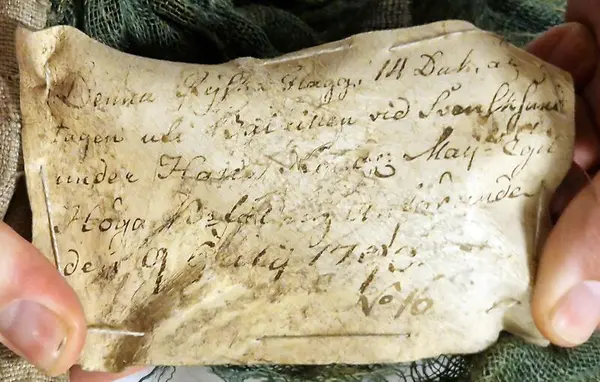 Denna Ryska Flagg. 14 Duk, är
tagen uti Batailien vid Svensksund
under Hans Kongl. May:ts Eget
Höga Befäl Anförande
den 9 Julij 1790.
No 16